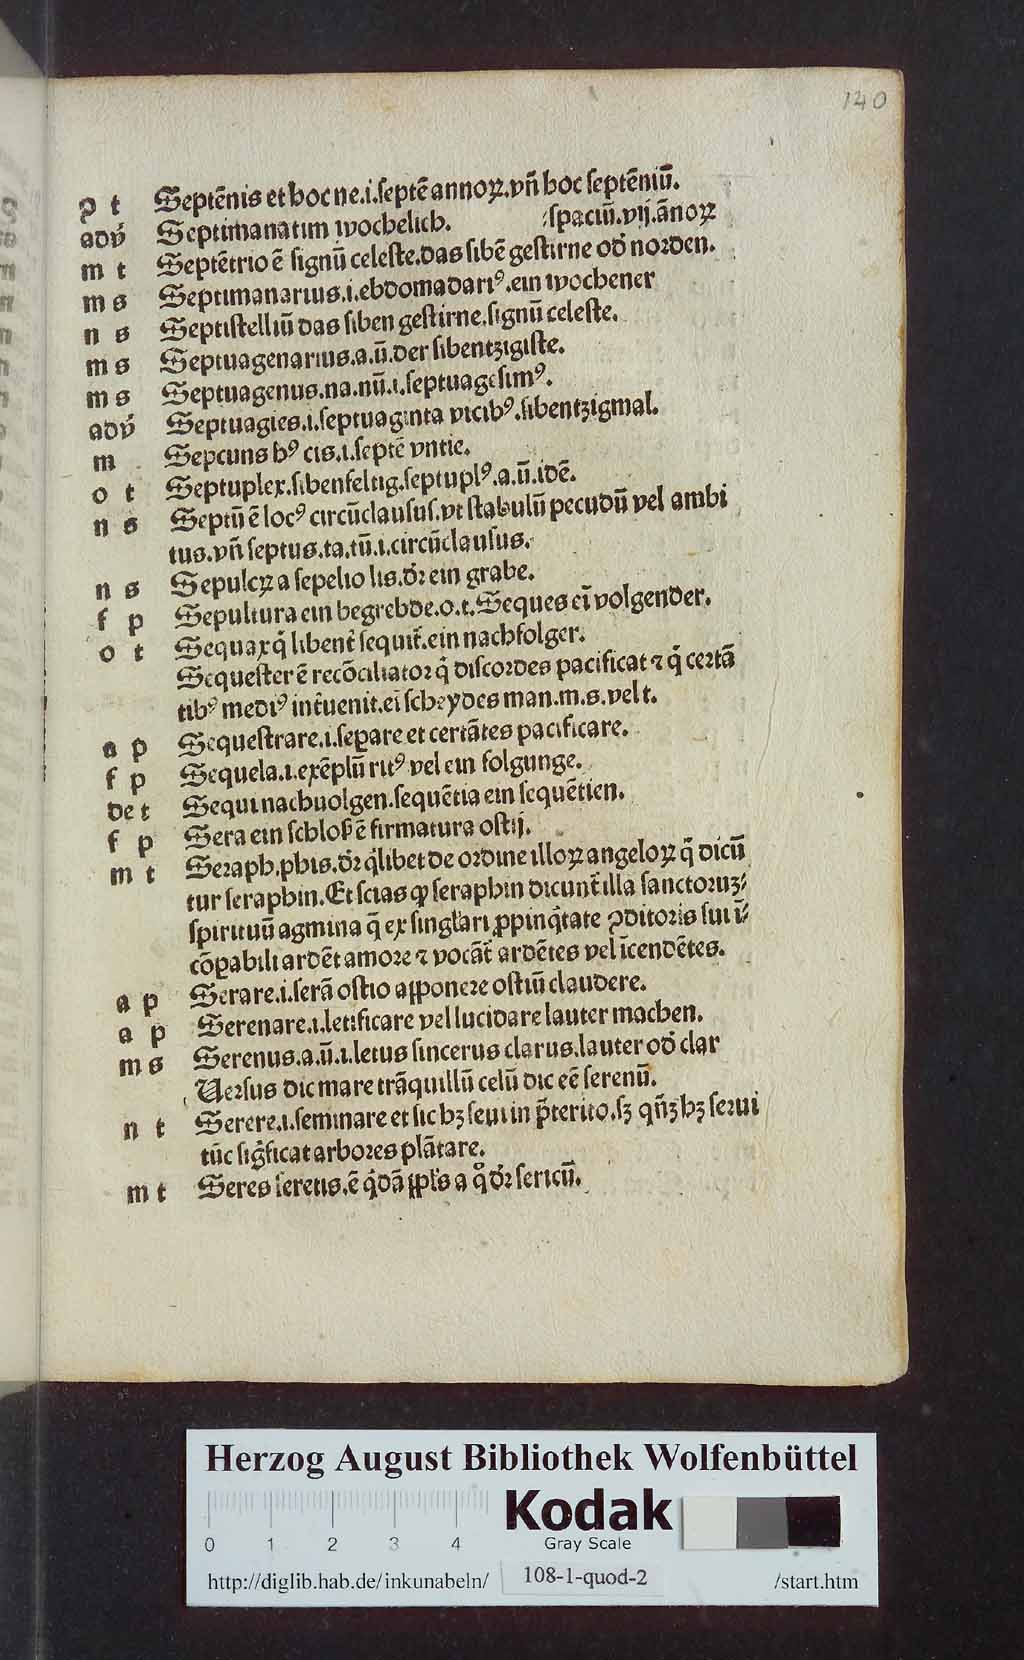 140
ꝑ t Septēnis et hoc ne.i.septē annoꝝ.vn̄ hoc septēniū.
adv̓ Septimanatim wochelich. spaciū.vij.ānoꝝ
m t Septētrio ē signū celeste.das sibē gestirne od̓ norden.
m s Septimanarius.i.ebdomadariꝰ.ein wochener
n s Septistelliū das siben gestirne.signū celeste.
m s Septuagenarius.a.ū.der sibentzigiste.
m s Septuagenus.na.nū.i.septuagesimꝰ.
adv̓ Septuagies.i.septuaginta vicibꝰ.sibentzigmal.
m Sepcuns hꝰ cis.i.septē vntie.
o t Septuplex.sibenfeltig.septuplꝰ.a.ū.idē.
n s Septū ē locꝰ circūclausus.vt stabulū pecudū vel ambi
tus.vn̄ septus.ta.tū.i.circūclausus.
n s Sepulcꝝ a sepelio lis.dr̓ ein grabe.
f p Sepultura ein begrebde.o.t.Seques eī volgender.
o t Sequax q̓ libent̓ sequit̓.ein nachfolger.
Sequester ē recōciliator q̓ discordes pacificat ⁊ q̓ certā
tibꝰ mediꝰ int̓uenit.eī scheydes man.m.s.vel t.
a p Sequestrare.i.seꝑare et certātes pacificare.
f p Sequela.i.exēplū ritꝰ vel ein folgunge.
de t Sequi nachuolgen.sequētia ein sequētien.
f p Sera ein schloß ē firmatura ostij.
m t Seraph.phis.dr̓ q̓libet de ordine illoꝝ angeloꝝ q̄ dicū
tur seraphin.Et scias ꝙ seraphin dicunt̓ illa sanctoruꝫ
spirituū agmina q̄ ex singl̓ari ꝓpinq̓tate ꝯditoris sui ī
cōꝑabili ardēt amore ⁊ vocāt̓ ardētes vel īcendētes.
a p Serare.i.serā ostio apponere ostiū claudere.
a p Serenare.i.letificare vel lucidare lauter machen.
m s Serenus.a.ū.i.letus sincerus clarus.lauter od̓ clar
Uersus dic mare trāquillū celū dic eē serenū.
n t Serere.i.seminare et sic hꝫ seui in p̄terito.sꝫ qn̄ꝫ hꝫ serui
tūc sig̓ficat arbores plātare.
m t Seres seretis.ē q̓dā ppl̓s a q̊ dr̓ sericū.
Herzog August Bibliothek Wolfenbüttel
Kodak
Gray Scale
0 1 2 3 4
http://diglib.hab.de/inkunabeln/ 108-1-quod-2 /start.htm